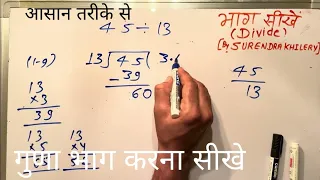 आसान तरीके से
45÷13
भाग सीखें
(Divide)
[By SURENDRA KHILERY]
(1-9)
13) 45 ( 3.
-39
60
13
×3
39
13
×5
13
×4
45
13
गुणा भाग करना सीखे